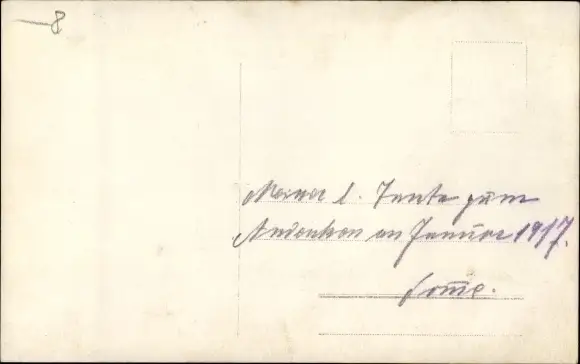 8
Meiner l. Tante zum
Andenken an Januar 1917.